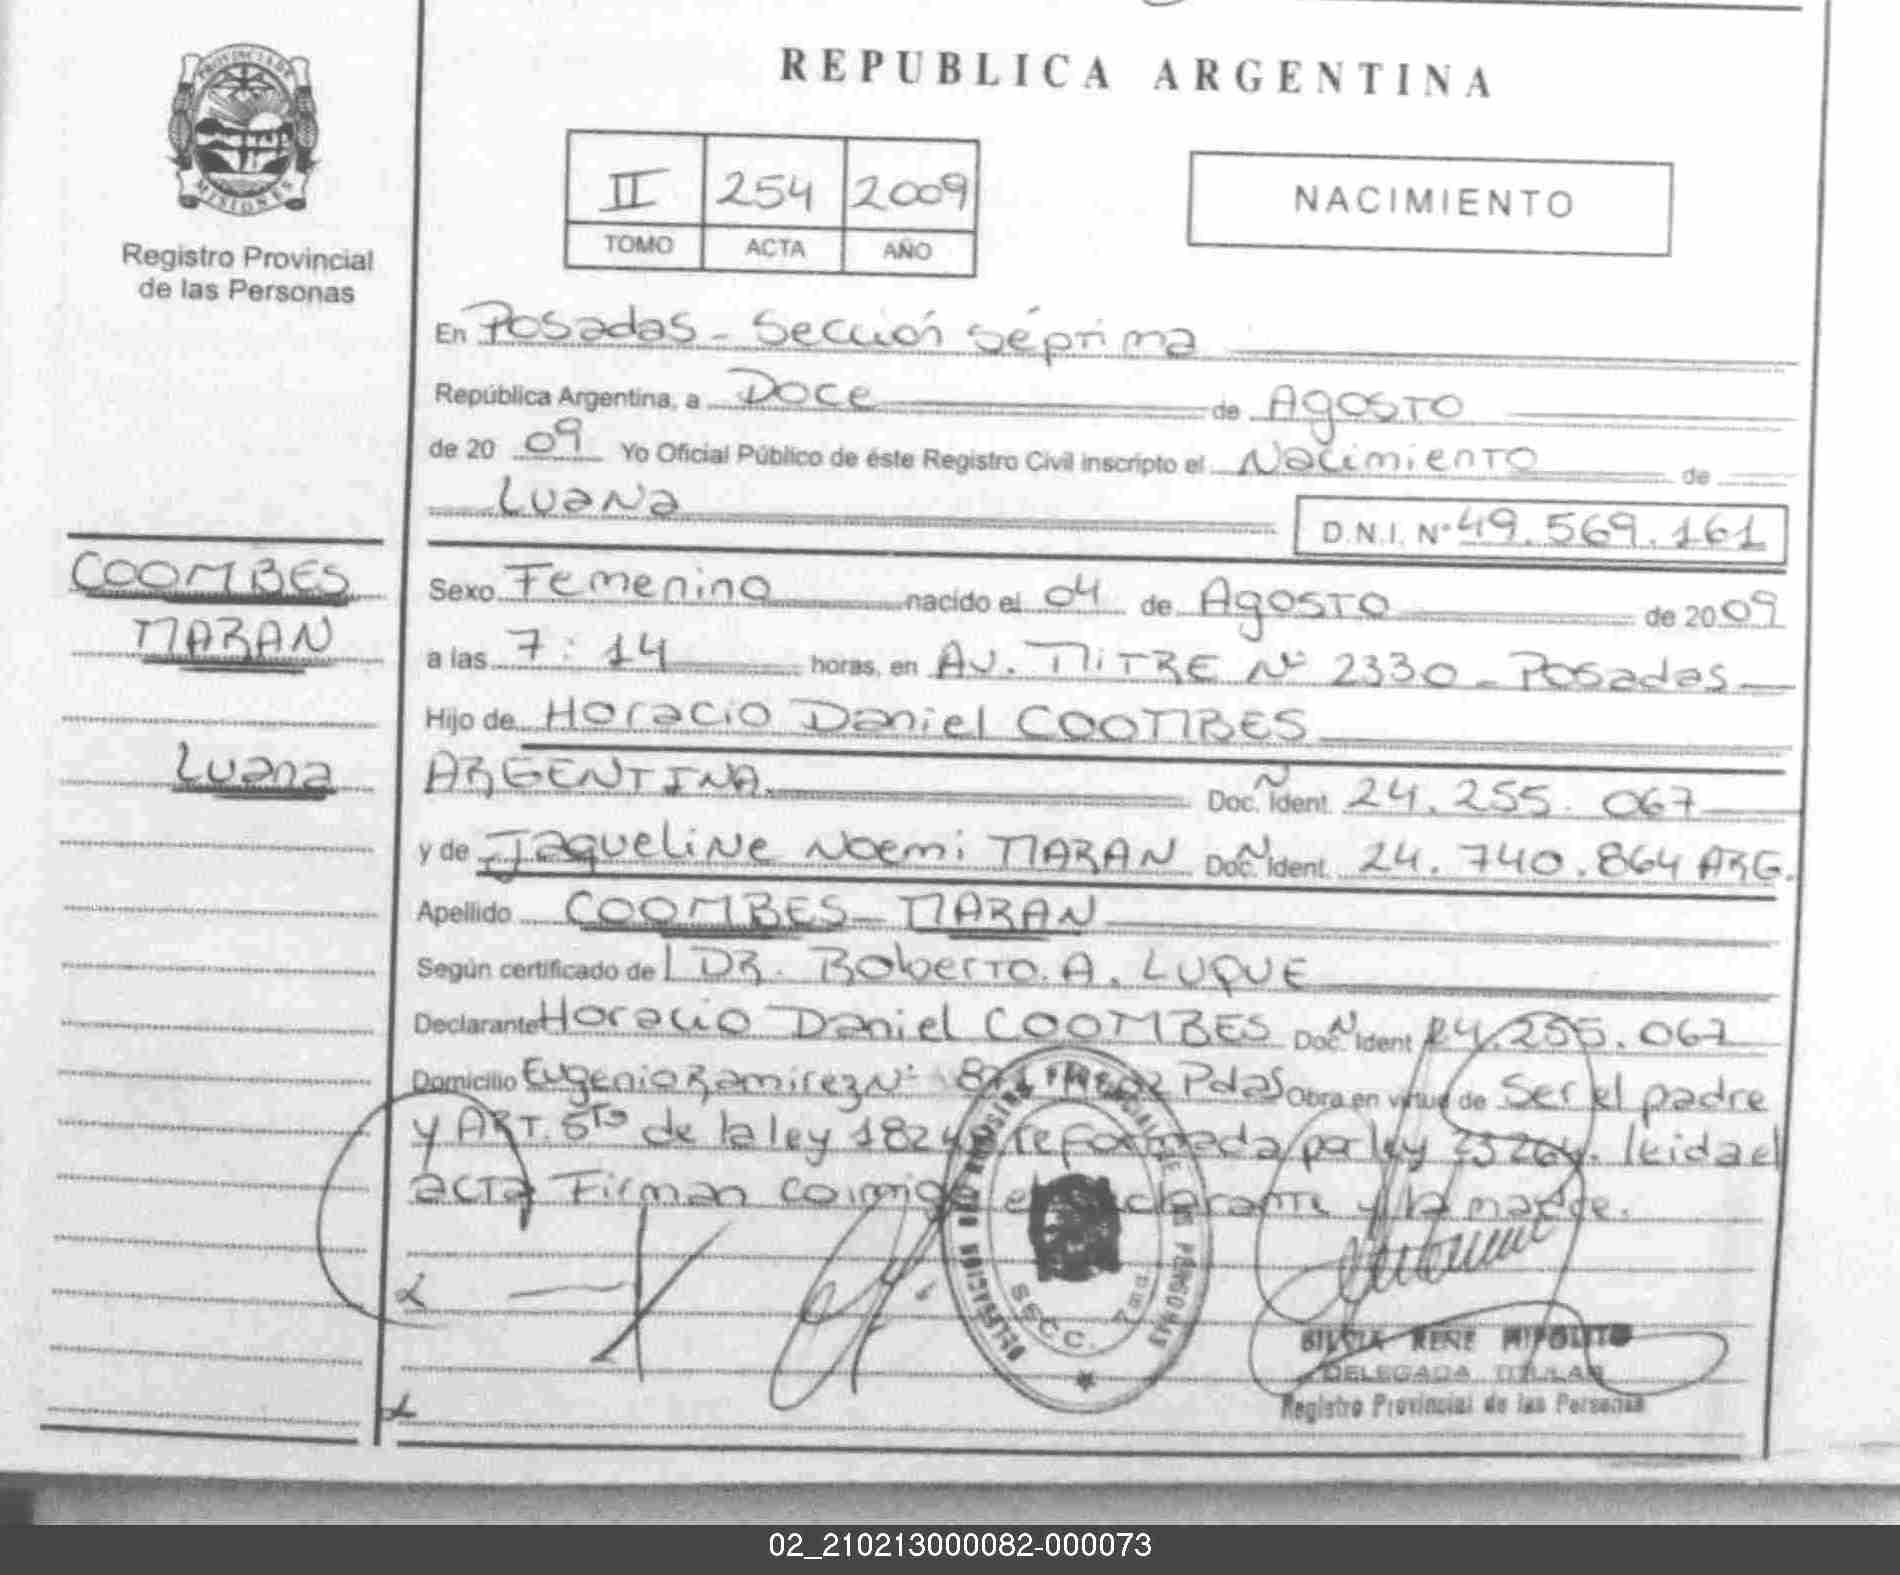 PROVINCIA DE
MISIONES
Registro Provincial
de las Personas
REPUBLICA ARGENTINA
II 254 2009
TOMO ACTA AÑO
NACIMIENTO
En Posadas - Sección séptima
República Argentina, a Doce de Agosto
de 20 09 Yo Oficial Público de éste Registro Civil inscripto el Nacimiento de
Luana
D.N.I. Nº 49.569.161
COOMBES
MARAN
Luana
Sexo Femenino nacido el 04 de Agosto de 2009
a las 7:14 horas, en AV. MITRE Nº 2330 - Posadas
Hijo de Horacio Daniel COOMBES
ARGENTINA Doc. Ident. 24.255.067
y de Jaqueline Noemi MARAN Doc. Ident. 24.740.864 ARG.
Apellido COOMBES MARAN
Según certificado de DR. Roberto A. LUQUE
Declarante Horacio Daniel COOMBES Doc. Ident 24.255.067
Domicilio Eugenio Ramirez Nº Pdas Obra en virtud de Ser el padre
y ART. 5to de la ley reformada por ley leida el
acta Firman conmigo el declarante y la madre.
DELEGACION DEL REGISTRO PROVINCIAL DE LAS PERSONAS
SECC.
SILVIA RENE HIPOLITO
DELEGADA TITULAR
Registro Provincial de las Personas
02_210213000082-000073